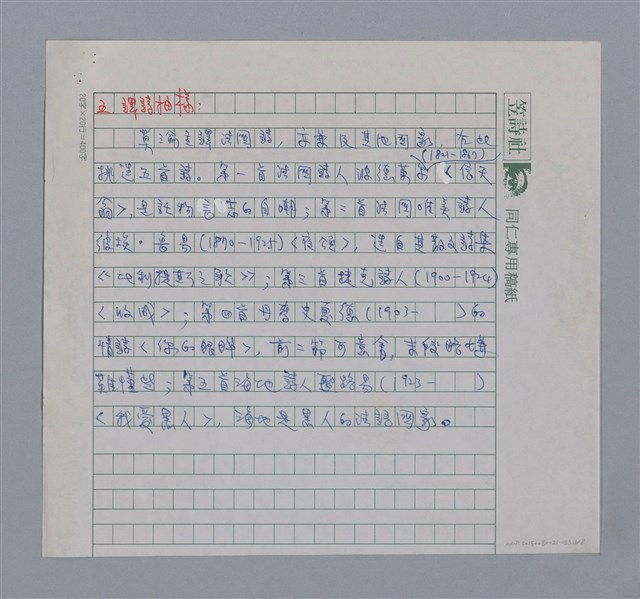 五、譯詩抽樣:
莫渝主譯法國詩,亦兼及其他國家,在此
(1821-1867)
挑選五首詩。第一首法國詩人波德萊爾《信天
翁》,是詠物言志的自嘲;第二首法國唯美詩人
彼埃・魯易(1870-1925)《夜》,選自其散文詩集
《比利提斯之歌》;第三首捷克詩人(1900-1924)
《收成》;第四首丹麥史(1903- )的
情詩《你的眼眸》,前二節可意會,末段晦
難懂些;第五首海地詩人(1923- )
《我愛黑人》,海地是黑人的法語國家。
笠詩社
同仁專用稿紙
20字×20行=400字